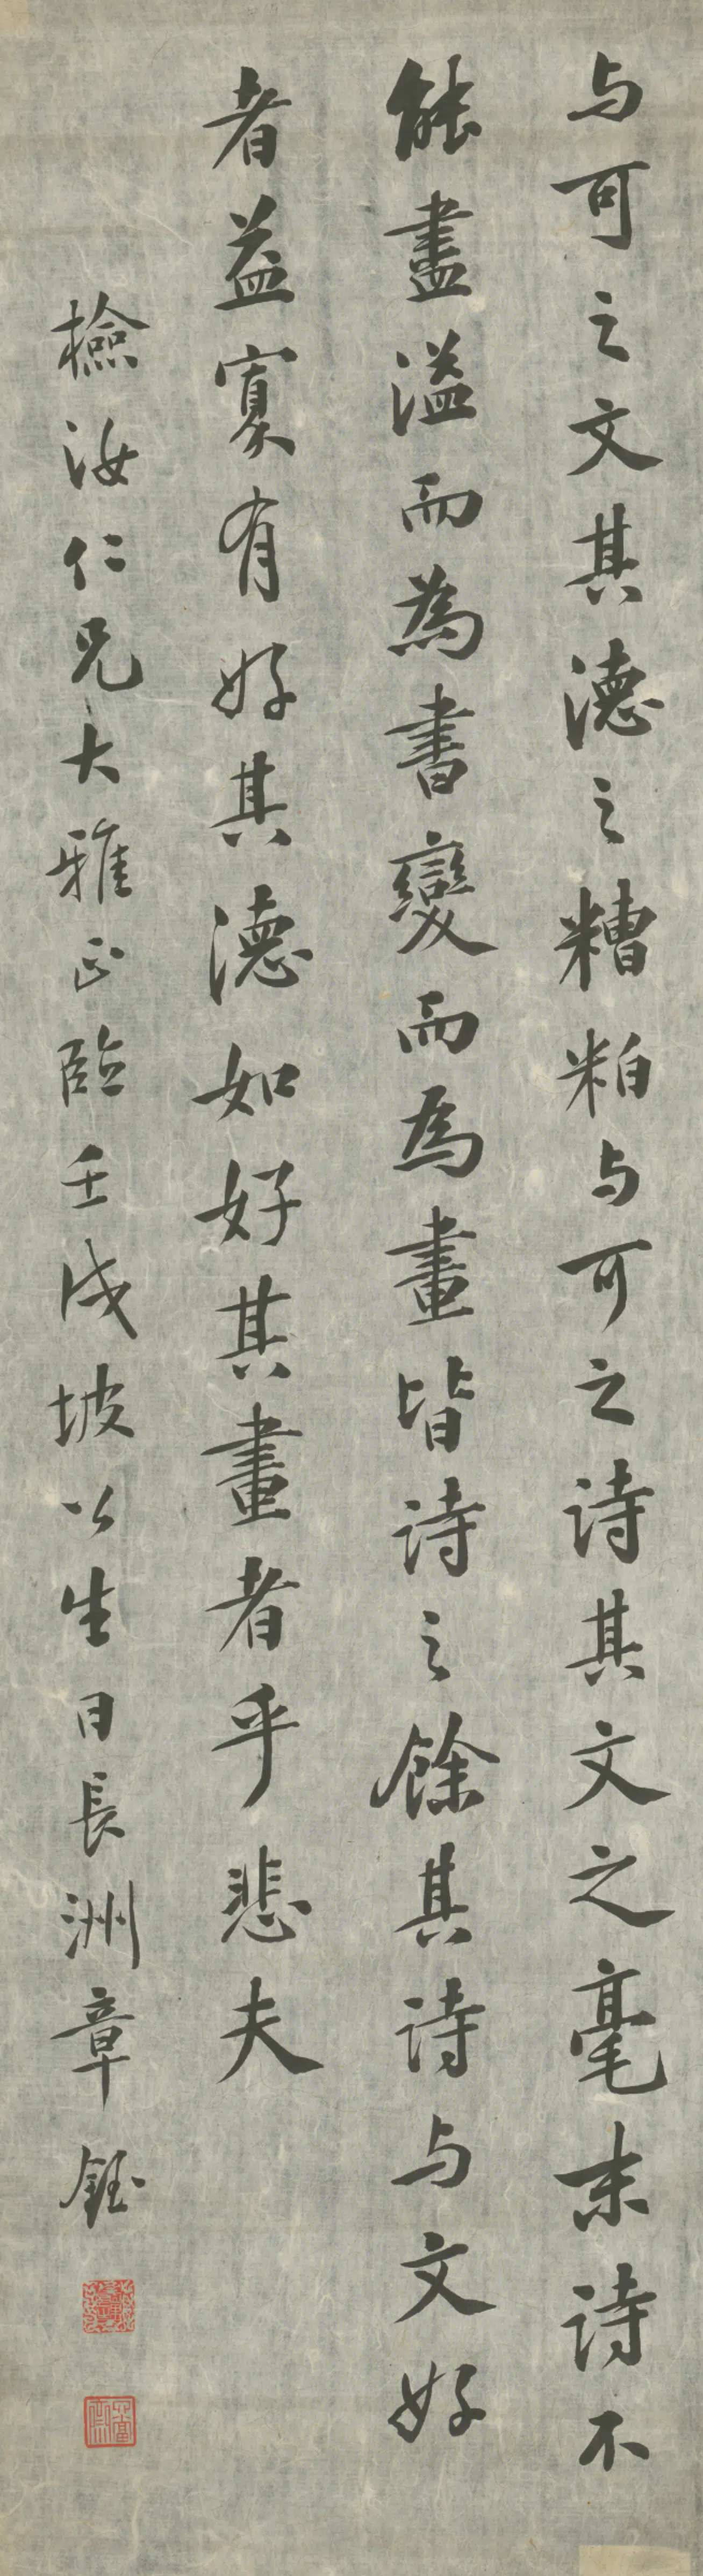 与可之文其德之糟粕与可之诗其文之毫末诗不
能盡溢而為書變而為畫皆诗之餘其诗与文好
者益寡有好其德如好其畫者乎悲夫
檢汝仁兄大雅正臨壬戌坡公生日長洲章鈺